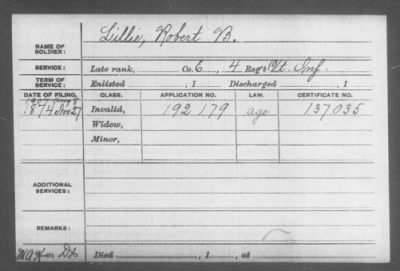 NAME OF SOLDIER: Lillie, Robert B.
SERVICE: Late rank, Co. C, 4 Reg't Vt. Inf.
TERM OF SERVICE: Enlisted , 1 Discharged , 1
DATE OF FILING. CLASS. APPLICATION NO. LAW. CERTIFICATE NO.
1874 Nov 27 Invalid, 192 179 age 137035
Widow,
Minor,
ADDITIONAL SERVICES:
REMARKS:
Died , 1 , at